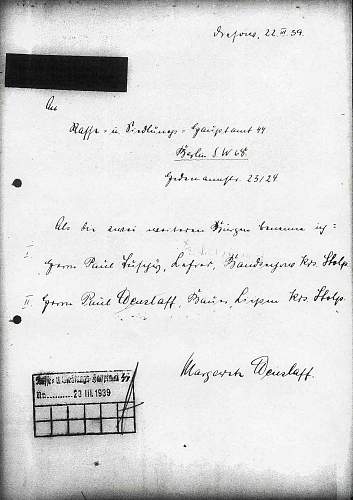 22. III 39.
An
Rasse- u. Siedlungs-Hauptamt SS
Berlin S W 68.
Hedemannstr. 23/24
Als die zwei weiteren Bürgen benenne ich:
I. Herrn Paul Lehrer, Krs. Stolp.
II. Herrn Paul Wenzlaff, Bauer, Krs. Stolp.
Margarete Wenzlaff.
Rasse- u. Siedlungs-Hauptamt SS
Nr. 23 III. 1939